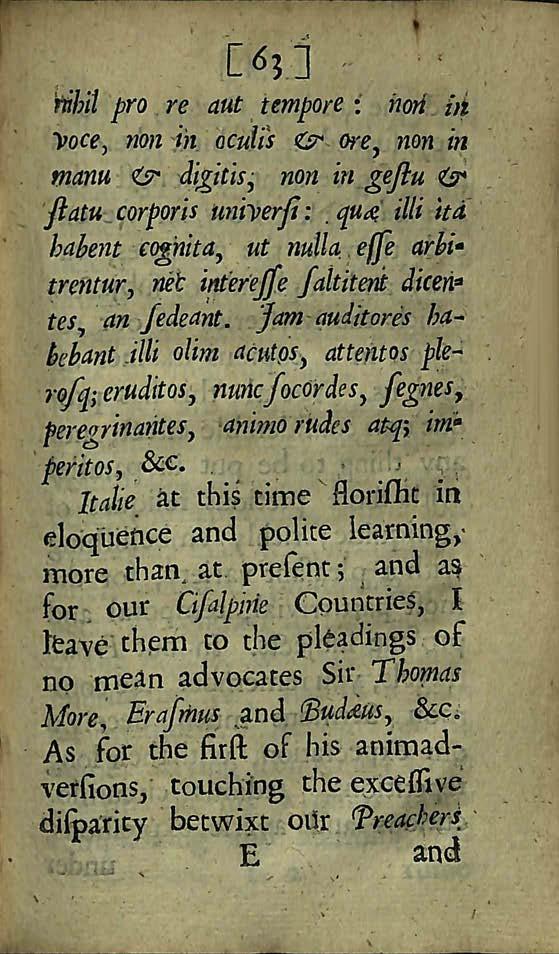 [ 63 ]
nihil pro re aut tempore : non in
voce, non in oculis & ore, non in
manu & digitis, non in geſtu &
ſtatu corporis univerſi : quæ illi ità
habent cognita, ut nulla eſſe arbi-
trentur, nec intereſſe ſaltitent dicen-
tes, an ſedeant. Jam auditores ha-
bebant illi olim acutos, attentos ple-
roſq; eruditos, nunc ſocordes, ſegnes,
peregrinantes, animo rudes atq; im-
peritos, &c.
Italie at this time floriſht in
eloquence and polite learning,
more than at preſent ; and as
for our Ciſalpine Countries, I
leave them to the pleadings of
no mean advocates Sir Thomas
More, Eraſmus and Budæus, &c.
As for the firſt of his animad-
verſions, touching the exceſſive
diſparity betwixt our Preachers
E and